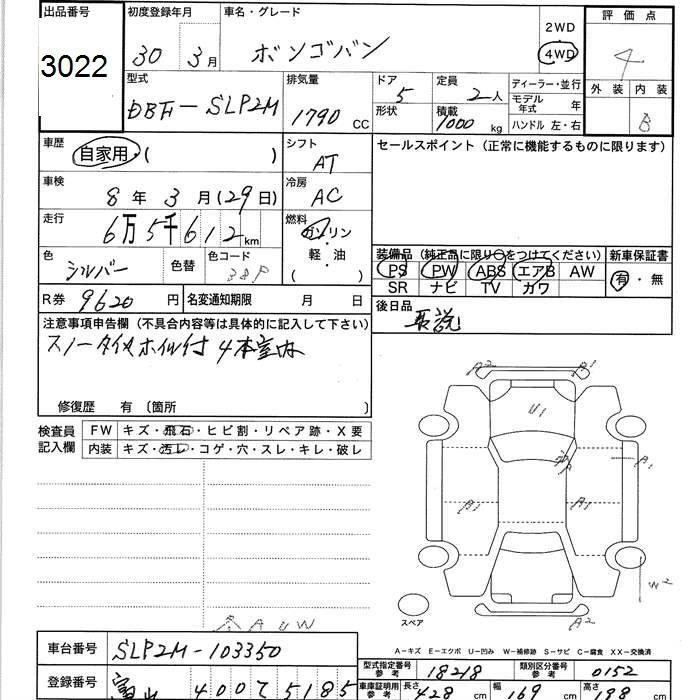 出品番号 3022
初度登録年月 30年 3月
車名・グレード ボンゴバン
2WD
4WD
評価点 4
外装 内装 B
型式 DBF-SLP2M
排気量 1790 CC
ドア 5
形状
定員 2人
積載 1000 kg
ディーラー・並行
モデル年式 年
ハンドル 左・右
車歴 自家用・( )
シフト AT
セールスポイント (正常に機能するものに限ります)
車検 8年 3月 (29日)
冷房 AC
走行 6万5千612 km
燃料 ガソリン
軽・油
( )
色 シルバー 色替 色コード 38P
装備品 (純正品に限り○をつけてください)
PS PW ABS エアB AW
SR ナビ TV カワ
新車保証書
有・無
R券 9620円
名変通知期限 月 日
後日品 取説
注意事項申告欄 (不具合内容等は具体的に記入して下さい)
スノータイヤホイル付 4本室内
修復歴 有 〔箇所 〕
検査員記入欄
FW キズ・飛石・ヒビ割・リペア跡・X要
内装 キズ・汚レ・コゲ・穴・スレ・キレ・破レ
A2 A1
U1
A1
A1 A1
W2
A2
スペア
A U W
A-キズ E-エクボ U-凹み W-補修跡 S-サビ C-腐食 XX-交換済
車台番号 SLP2M-103350
型式指定番号 参考 18218
類別区分番号 参考 0152
登録番号 富山 400 て 5185
車庫証明用 参考 長さ 428 cm 幅 169 cm 高さ 198 cm